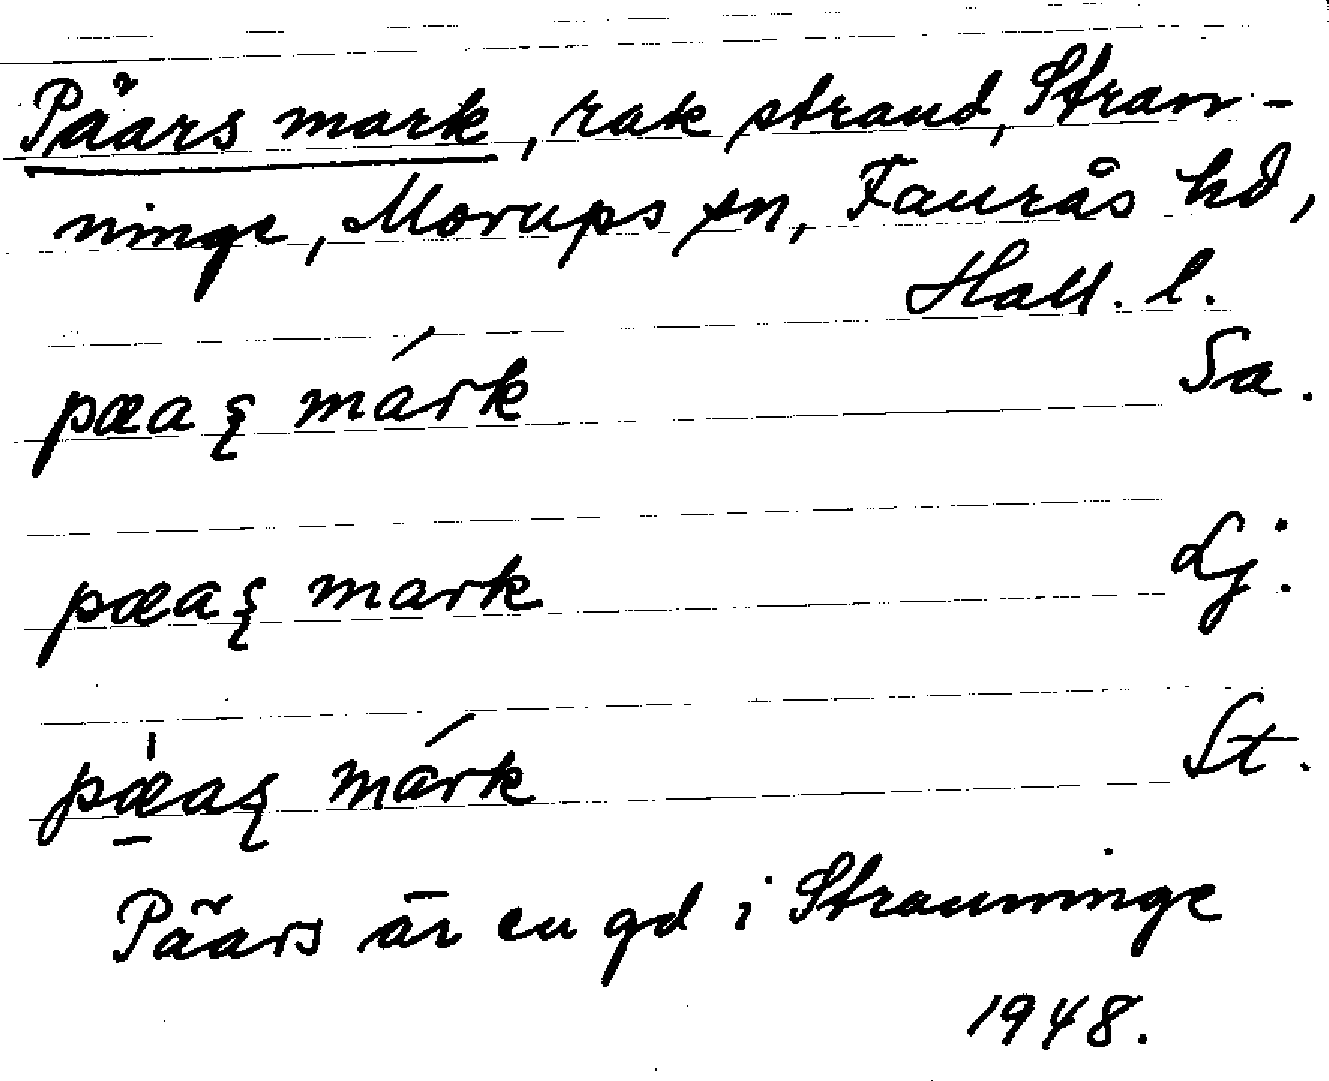 Päars mark, rak strand, Stran-
ninge, Morups sn, Faurås hd,
Hall. l.
pæaʂ márk Sa.
pæaʂ mark Lj.
pæ̱̍aʂ márk St.
Päars är en gd i Stranninge
1948.